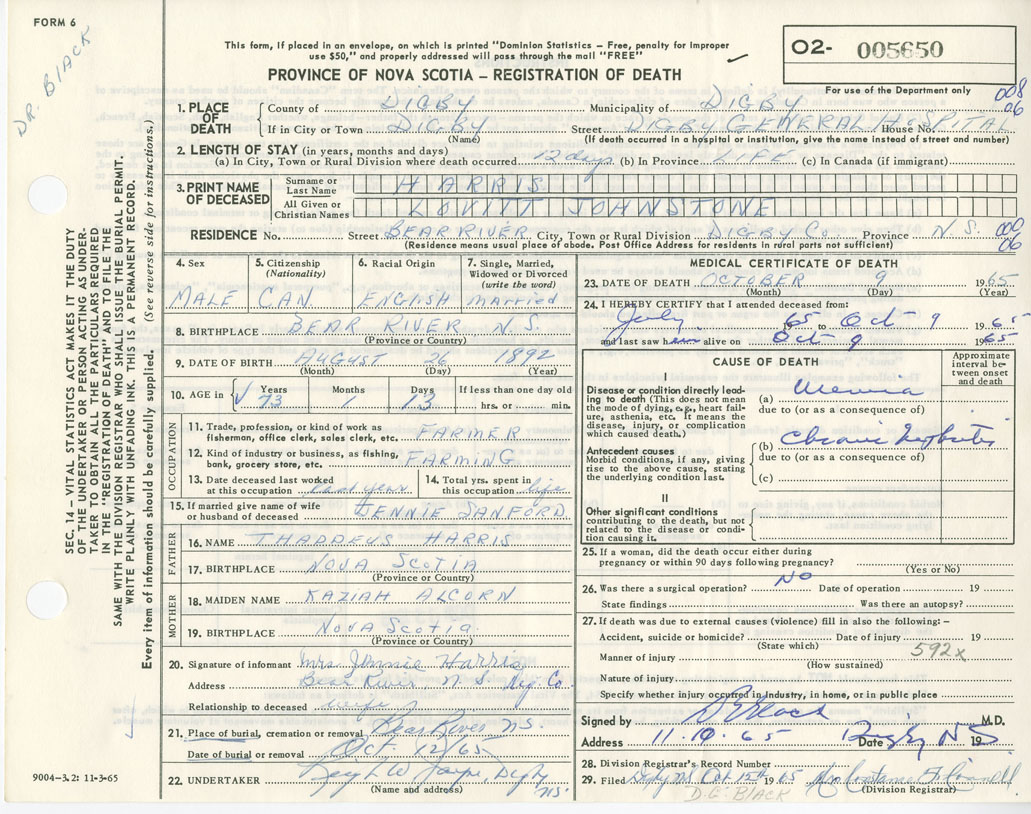 FORM 6
DR. BLACK
This form, if placed in an envelope, on which is printed "Dominion Statistics – Free, penalty for improper
use $50," and properly addressed will pass through the mail "FREE"
PROVINCE OF NOVA SCOTIA – REGISTRATION OF DEATH
O2- 005650
For use of the Department only
008
06
1. PLACE OF DEATH
County of DIGBY Municipality of DIGBY
If in City or Town DIGBY Street DIGBY GENERAL HOSPITAL House No.
(Name) (If death occurred in a hospital or institution, give the name instead of street and number)
2. LENGTH OF STAY (in years, months and days)
(a) In City, Town or Rural Division where death occurred 12 days (b) In Province LIFE (c) In Canada (if immigrant)
3. PRINT NAME OF DECEASED
Surname or Last Name HARRIS
All Given or Christian Names LOVITT JOHNSTONE
RESIDENCE No. Street BEAR RIVER City, Town or Rural Division DIGBY Co. Province N.S.
000
06
(Residence means usual place of abode. Post Office Address for residents in rural parts not sufficient)
4. Sex
MALE
5. Citizenship
(Nationality)
CAN.
6. Racial Origin
ENGLISH
7. Single, Married,
Widowed or Divorced
(write the word)
married
8. BIRTHPLACE BEAR RIVER N.S.
(Province or Country)
9. DATE OF BIRTH AUGUST 26 1892
(Month) (Day) (Year)
10. AGE in
Years Months Days If less than one day old
73 1 13 hrs. or min.
OCCUPATION
11. Trade, profession, or kind of work as
fisherman, office clerk, sales clerk, etc. FARMER
12. Kind of industry or business, as fishing,
bank, grocery store, etc. FARMING
13. Date deceased last worked
at this occupation last year
14. Total yrs. spent in
this occupation life
15. If married give name of wife
or husband of deceased JENNIE SANFORD
FATHER
16. NAME THADDEUS HARRIS
17. BIRTHPLACE NOVA SCOTIA
(Province or Country)
MOTHER
18. MAIDEN NAME KAZIAH ALCORN
19. BIRTHPLACE NOVA SCOTIA
(Province or Country)
20. Signature of informant Mrs Jennie Harris
Address Bear River, N.S. Dig. Co.
Relationship to deceased wife
21. Place of burial, cremation or removal Bear River NS.
Date of burial or removal Oct. 12/65
22. UNDERTAKER Digby
NS.
(Name and address)
MEDICAL CERTIFICATE OF DEATH
23. DATE OF DEATH OCTOBER 9 1965
(Month) (Day) (Year)
24. I HEREBY CERTIFY that I attended deceased from:
July 65 to Oct 9 1965
and last saw him alive on Oct 9 1965
CAUSE OF DEATH
Approximate
interval be-
tween onset
and death
I
Disease or condition directly lead-
ing to death (This does not mean
the mode of dying, e.g., heart fail-
ure, asthenia, etc. It means the
disease, injury, or complication
which caused death.)
(a) Uremia
due to (or as a consequence of)
Antecedent causes
Morbid conditions, if any, giving
rise to the above cause, stating
the underlying condition last.
(b) Chronic Nephritis
due to (or as a consequence of)
(c)
II
Other significant conditions
contributing to the death, but not
related to the disease or condi-
tion causing it.
25. If a woman, did the death occur either during
pregnancy or within 90 days following pregnancy?
(Yes or No)
26. Was there a surgical operation? NO Date of operation 19
State findings Was there an autopsy?
27. If death was due to external causes (violence) fill in also the following: –
Accident, suicide or homicide? Date of injury 19
(State which)
592x
Manner of injury
(How sustained)
Nature of injury
Specify whether injury occurred in industry, in home, or in public place
Signed by D E Black M.D.
Address 11.10.65 Date Digby NS 19
28. Division Registrar's Record Number
29. Filed Digby NS Oct 12th 1965
(Division Registrar)
D.G. BLACK
SEC. 14 – VITAL STATISTICS ACT MAKES IT THE DUTY
OF THE UNDERTAKER OR PERSON ACTING AS UNDER-
TAKER TO OBTAIN ALL THE PARTICULARS REQUIRED
IN THE "REGISTRATION OF DEATH" AND TO FILE THE
SAME WITH THE DIVISION REGISTRAR WHO SHALL ISSUE THE BURIAL PERMIT.
WRITE PLAINLY WITH UNFADING INK. THIS IS A PERMANENT RECORD.
Every item of information should be carefully supplied. (See reverse side for instructions.)
9004-3.2: 11-3-65